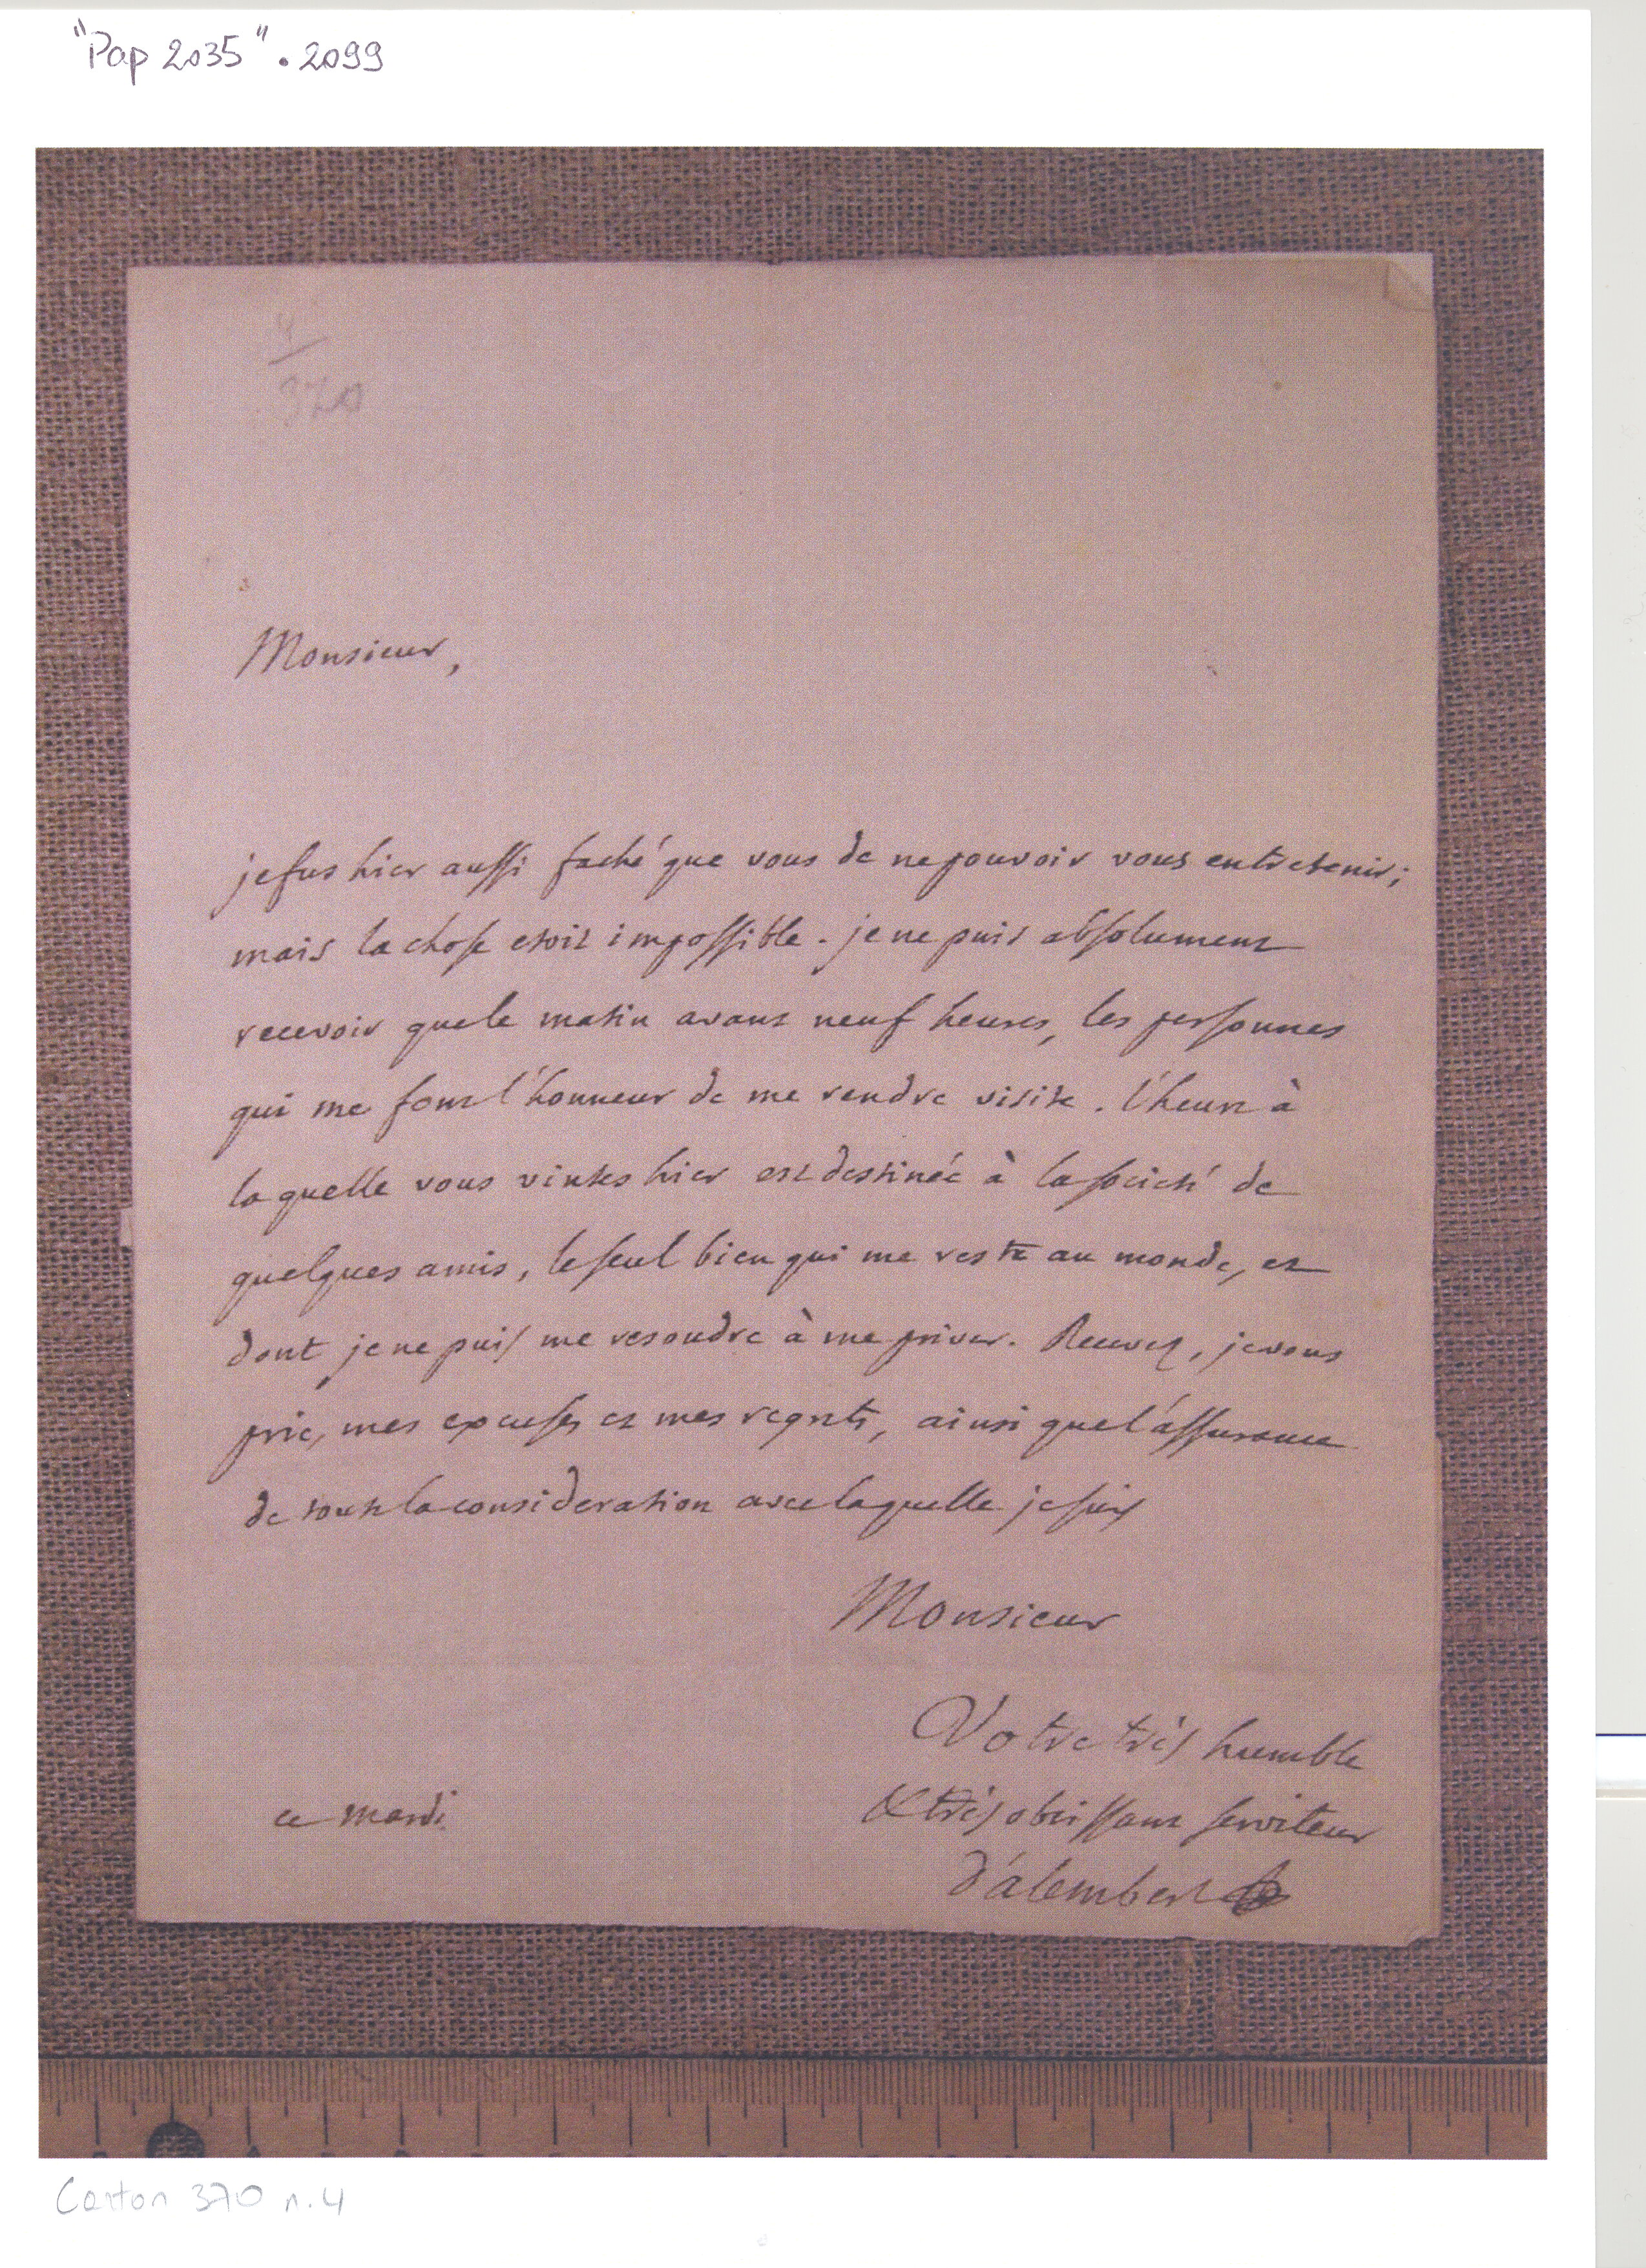 "Pap 2035" . 2099
4
370
Monsieur,
je fus hier aussi faché que vous de ne pouvoir vous entretenir;
mais la chose etoit impossible. je ne puis absolument
recevoir que le matin avant neuf heures, les personnes
qui me font l'honneur de me rendre visite. l'heure à
laquelle vous vintes hier est destinée à la société de
quelques amis, le seul bien qui me reste au monde, et
dont je ne puis me resoudre à me priver. Recevez, je vous
prie, mes excuses et mes regrets, ainsi que l'assurance
de toute la consideration avec laquelle je suis
Monsieur
Votre très humble
& très obeissant serviteur
ce mardi
d'alembert
Carton 370 n. 4